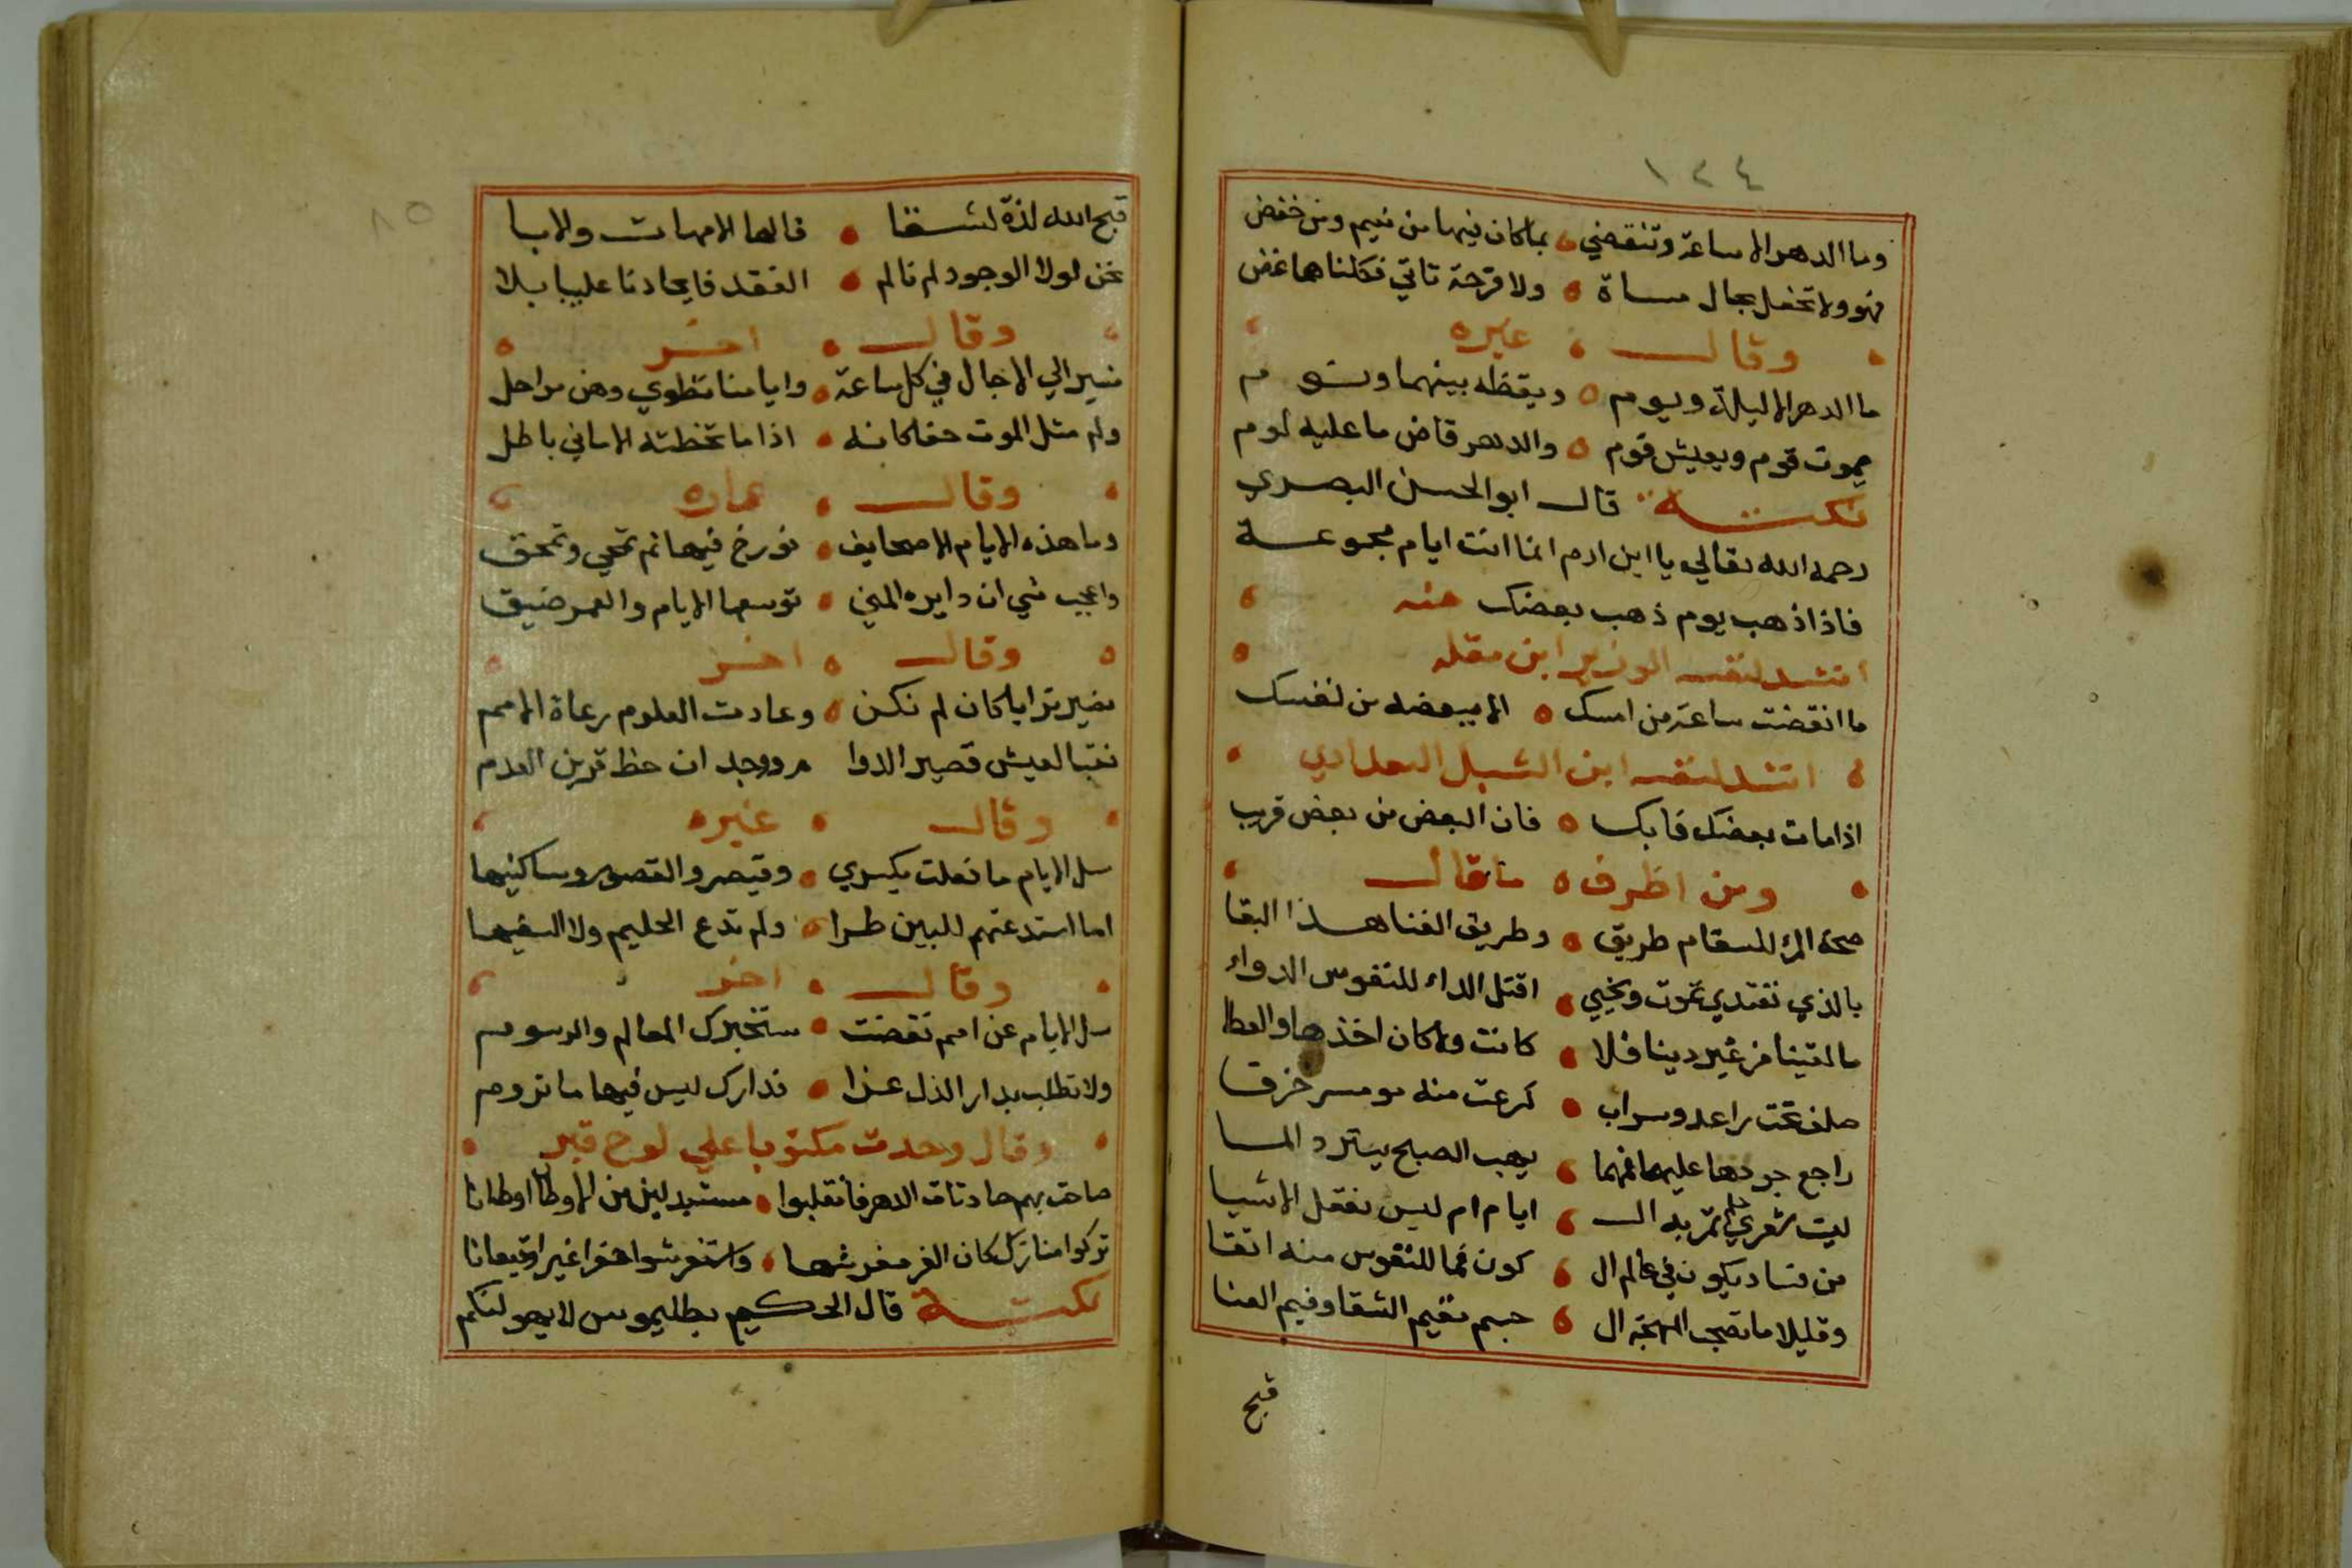 ١٢٤
وما الدهر الا ساعة وتنقضي بما كان فيها من نعيم ومن خفض
فهو ولا تحفل بحال مساة ولا قرحة تاتي فكلتاهما غض
وقال غيره
ما الدهر الا ليلة ويوم ويقظه بينهما ونوم
يموت قوم ويعيش قوم والدهر قاض ما عليه لوم
نكتة قال ابو الحسن البصري
رحمه الله تعالي يا ابن ادم انما انت ايام مجموعة
فاذا ذهب يوم ذهب بعضك منه
انشد لنفسه الوزير ابن مقله
ما انقضت ساعة من امسك الا ببعضه من نفسك
انشد لنفسه ابن الشبل البغدادي
اذا مات بعضك فابك فان البعض من بعض قريب
ومن اظرف ما قال
صحة المرء للسقام طريق وطريق الفنا هذا البقا
بالذي نغتدي نموت ونحيي اقتل الداء للنفوس الدواء
ما لقينا من غير دينا فلا كانت ولا كان اخذها والعطا
صلف تحت راعد وسراب كرعت منه مومس خرقا
راجع جودها عليها فمهما يهب الصبح يسترد المسا
ليت شعري حلم تمر به ال ايام ام ليس تعقل الاشيا
من فساد يكون في عالم ال كون فما للنفوس منه اتقا
وقليلا ما تصحب المهجة ال جسم نقيم الشقا وفيم العنا
قبح
٨٥
قبح الله لذة لشقا نالها الامهات والابا
نحن لولا الوجود لم نالم الفقد فايجادنا علينا بلا
وقال اخر
نسير الي الاجال في كل ساعة وايامنا تطوي وهن مراحل
ولم مثل الموت حقا كانه اذا ما تخطته الاماني باطل
وقال عماره
وما هذه الايام الا صحايف نورخ فيها ثم تمحي وتمحق
واعجب شي ان دايره المني توسعها الايام والعمر ضيق
وقال اخر
نصير ترابا كان لم نكن وعادت العلوم رعاة الامم
فتبا لعيش قصير الدوا م ووجدان حظ قرين العدم
وقال غيره
سل الايام ما فعلت بكسري وقيصر والقصور وساكنيها
اما استدعتهم للبين طرا ولم تدع الحليم ولا السفيها
وقال اخر
سل الايام عن امم تقضت ستخبرك المعالم والرسوم
ولا تطلب بدار الذل عزا فدارك ليس فيها ما تروم
وقال وجدت مكتوبا علي لوح قبر
صاحت بهم حادثات الدهر فانقلبوا مستبدلين من الاوطان اوطانا
تركوا منازل كان الغر مفرشها واستفرشوا حفرا غبرا وقيعانا
نكتة قال الحكيم بطليموس لا يهولنكم